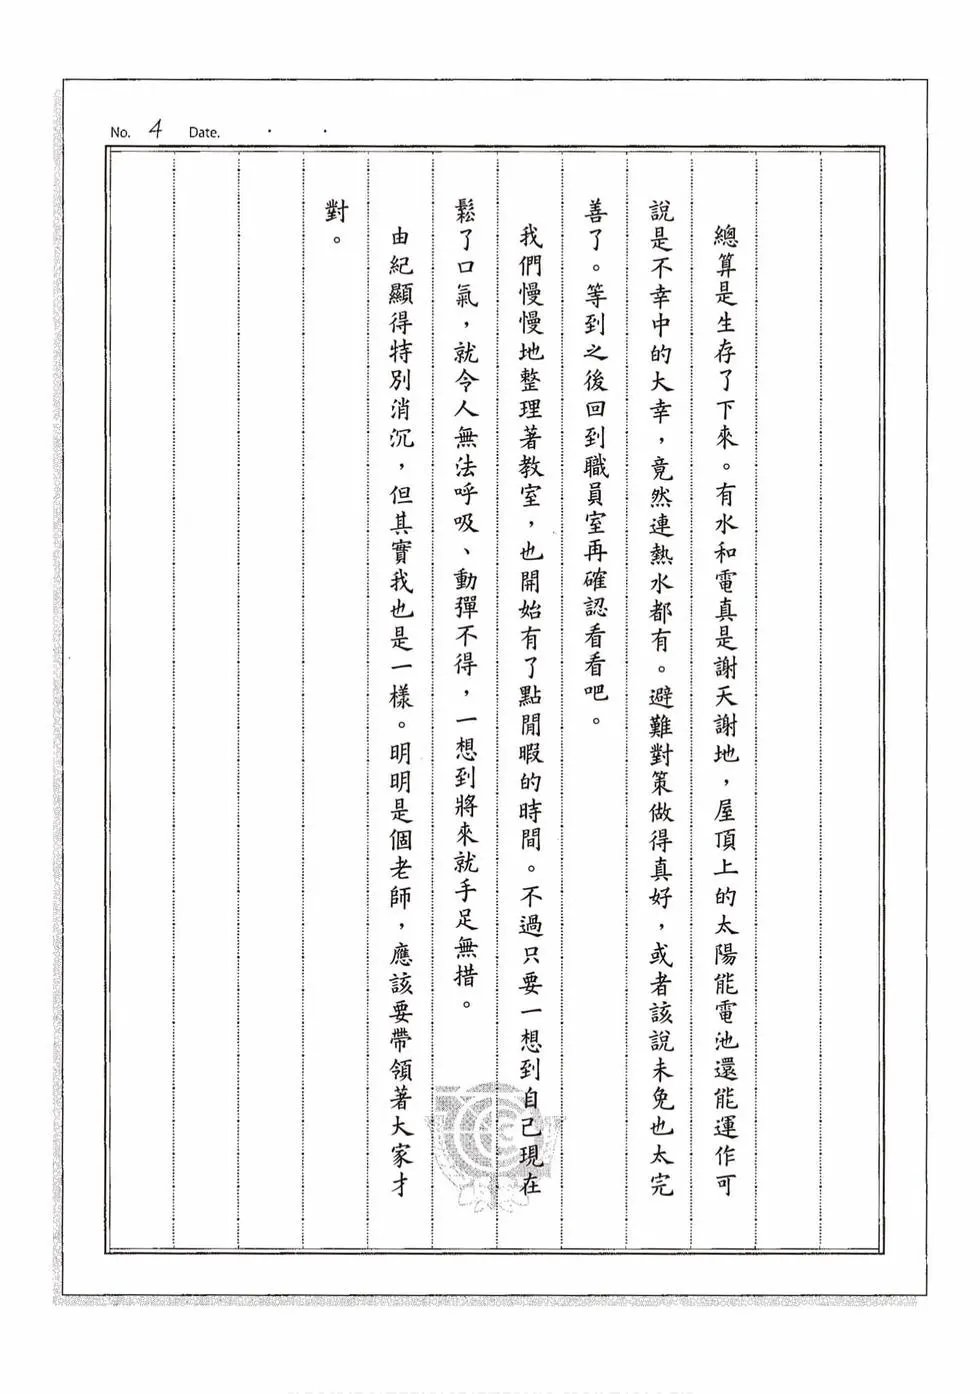 No. 4 Date. ・ ・
總算是生存了下來。有水和電真是謝天謝地，屋頂上的太陽能電池還能運作可
說是不幸中的大幸，竟然連熱水都有。避難對策做得真好，或者該說未免也太完
善了。等到之後回到職員室再確認看看吧。
我們慢慢地整理著教室，也開始有了點閒暇的時間。不過只要一想到自己現在
鬆了口氣，就令人無法呼吸、動彈不得，一想到將來就手足無措。
由紀顯得特別消沉，但其實我也是一樣。明明是個老師，應該要帶領著大家才
對。